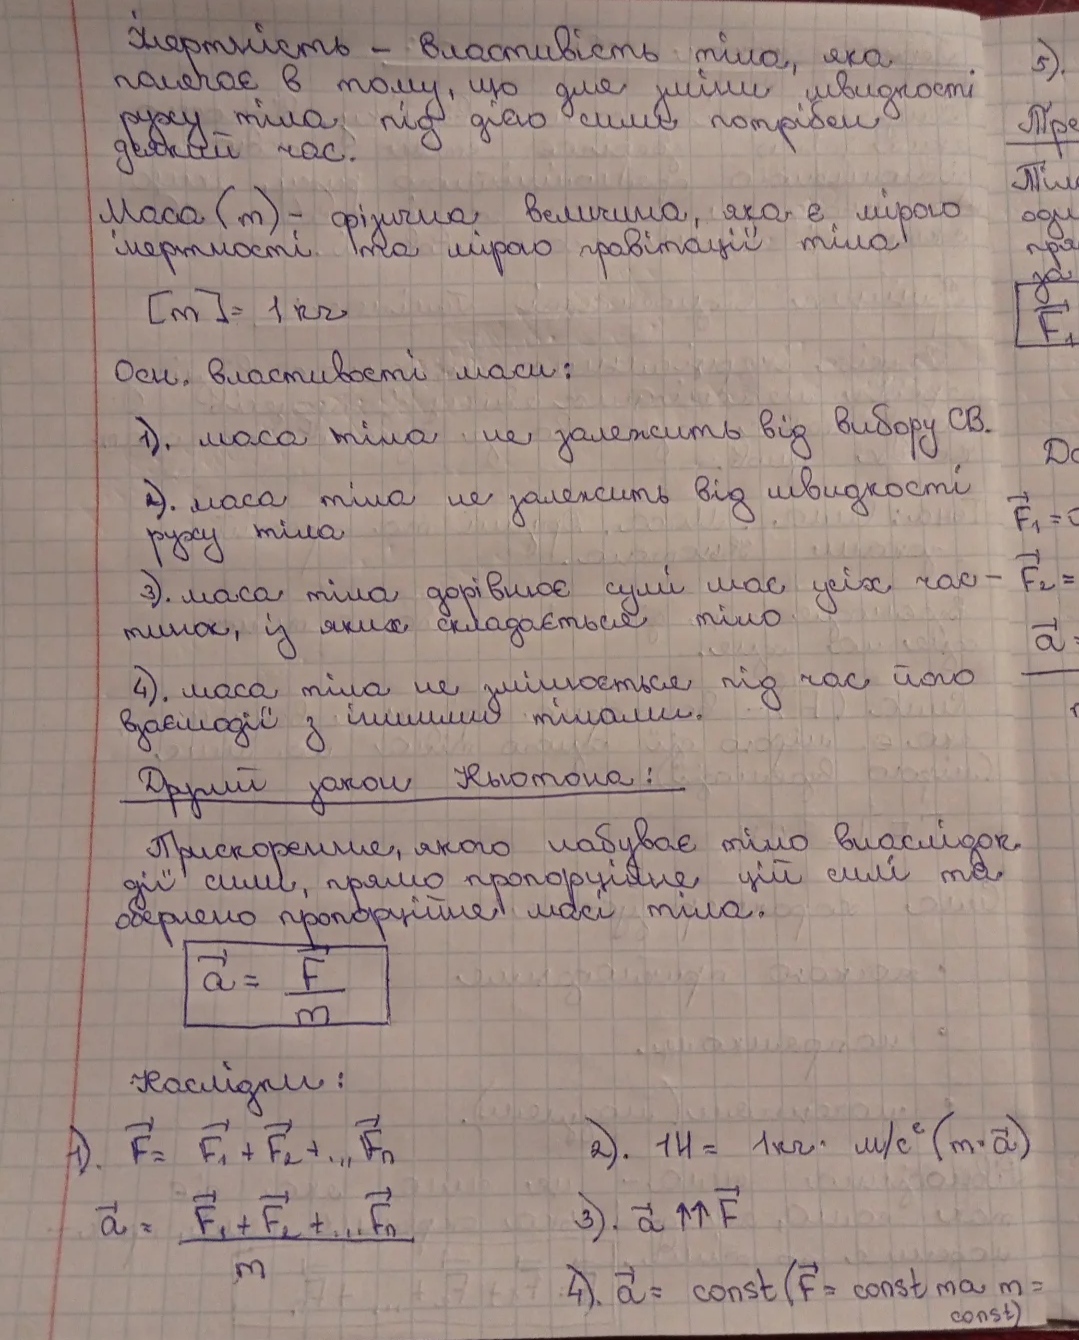 Інертність – властивість тіла, яка
полягає в тому, що для зміни швидкості
руху тіла під дією сили потрібен
деякий час.
Маса (m) – фізична величина, яка є мірою
інертності та мірою гравітації тіла
[m] = 1 кг
Осн. властивості маси:
1). маса тіла не залежить від вибору СВ.
2). маса тіла не залежить від швидкості
руху тіла
3). маса тіла дорівнює сумі мас усіх час-
тинок, із яких складається тіло
4). маса тіла не змінюється під час його
взаємодії з іншими тілами.
Другий закон Ньютона:
Прискорення, якого набуває тіло внаслідок
дії сили, прямо пропорційне цій силі та
обернено пропорційне масі тіла.
a⃗ = F⃗ / m
Наслідки:
1). F⃗ = F⃗₁ + F⃗₂ + ... F⃗ₙ
a⃗ = (F⃗₁ + F⃗₂ + ... F⃗ₙ) / m
2). 1Н = 1кг · м/с² (m · a⃗)
3). a⃗ ↑↑ F⃗
4). a⃗ = const (F⃗ = const та m =
const)
5).
Тре
Тіла
оди
пря
за
F⃗₁
F⃗₁ =
F⃗₂ =
a⃗ =